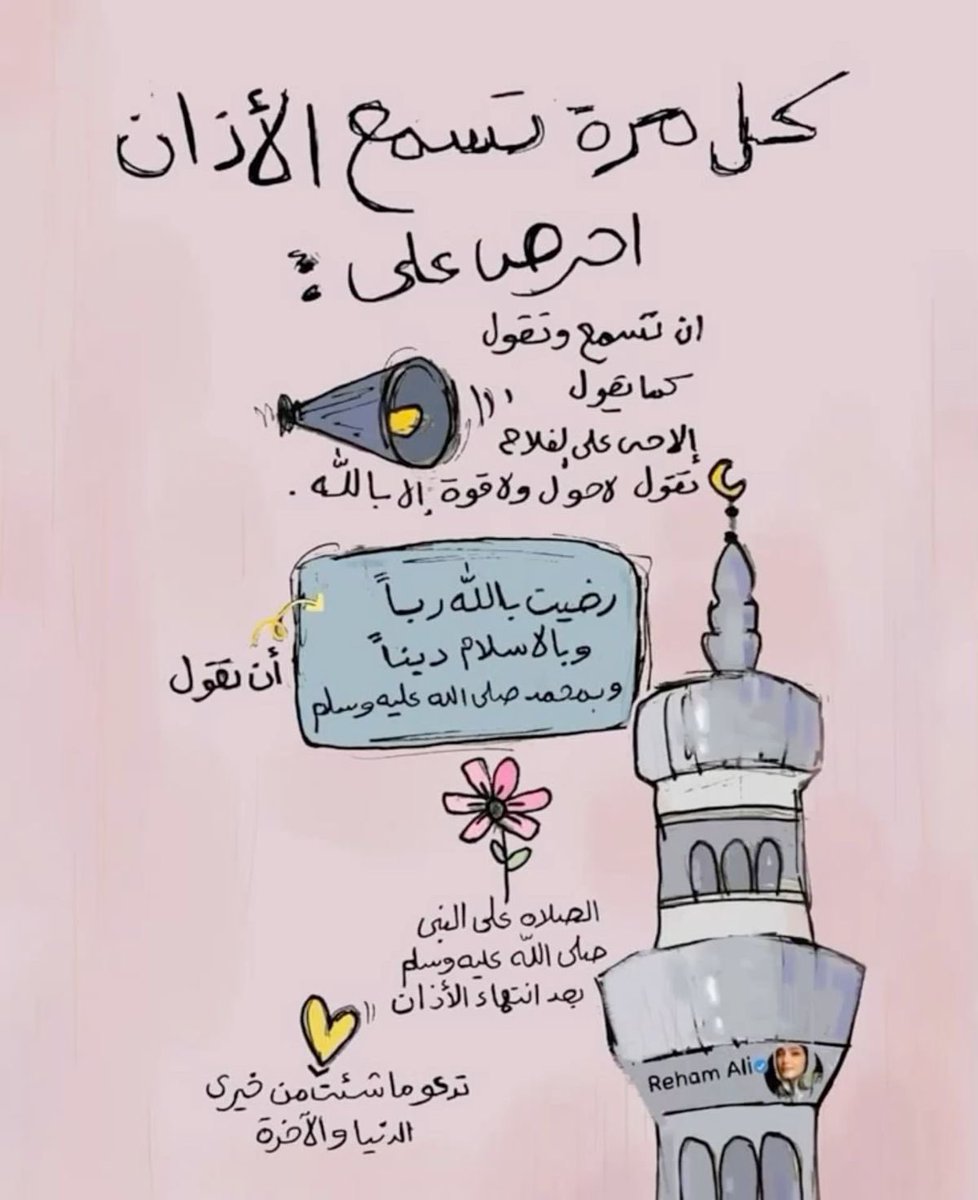 كل مرة تسمع الأذان
احرص على :
ان تسمع وتقول
كما يقول
إلا حى على لفلاح
تقول لا حول ولا قوة إلا بالله .
رضيت بالله رباً
وبالاسلام ديناً
وبمحمد صلى الله عليه وسلم
أن تقول
الصلاه على النبى
صلى الله عليه وسلم
بعد انتهاء الأذان
تدعو ما شئت من خيرى
الدنيا والآخرة
Reham Ali